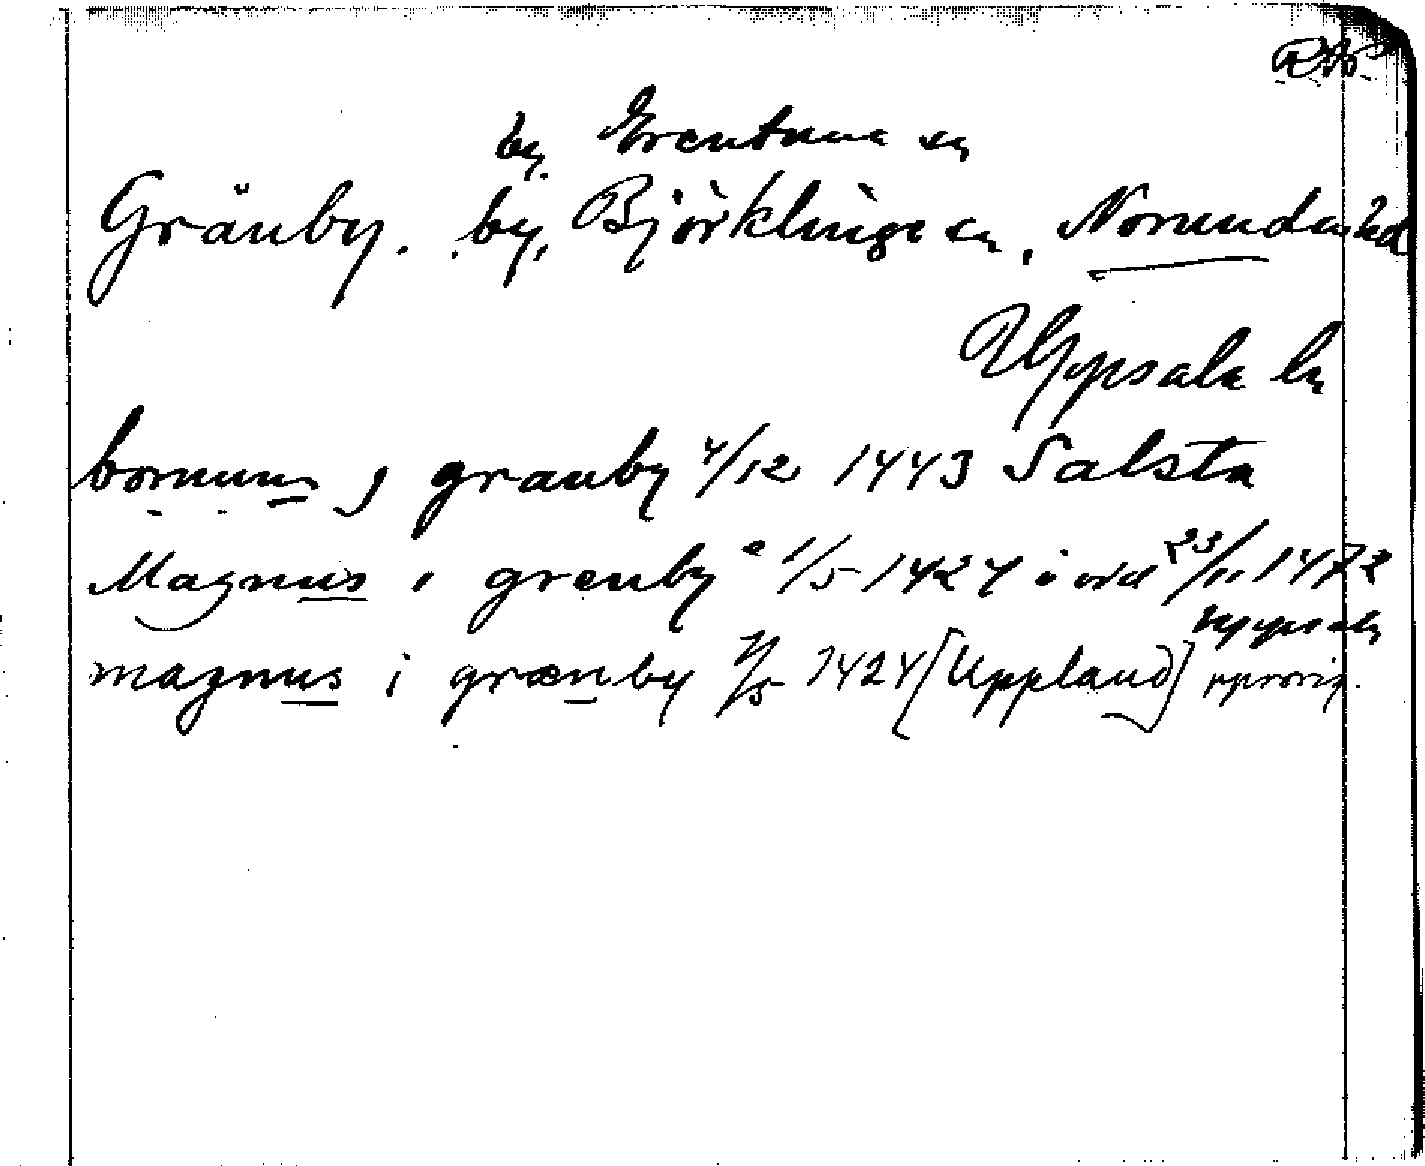 RAP
by. Erentuna sn
Gränby. by, Björklinge sn, Norunda hd
Uppsala ln
bornum j granby 4/12 1443 Salsta
Magnus i grenby 1/5 1424 i vid 23/11 1472
Uppsala
magnus i grænby 1/5 1424 [Uppland] pprorig.